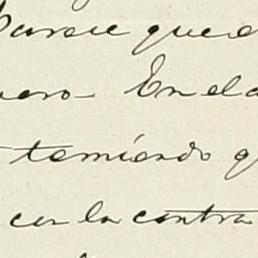 Parece que e
nero En el a
temiendo q
con la contra